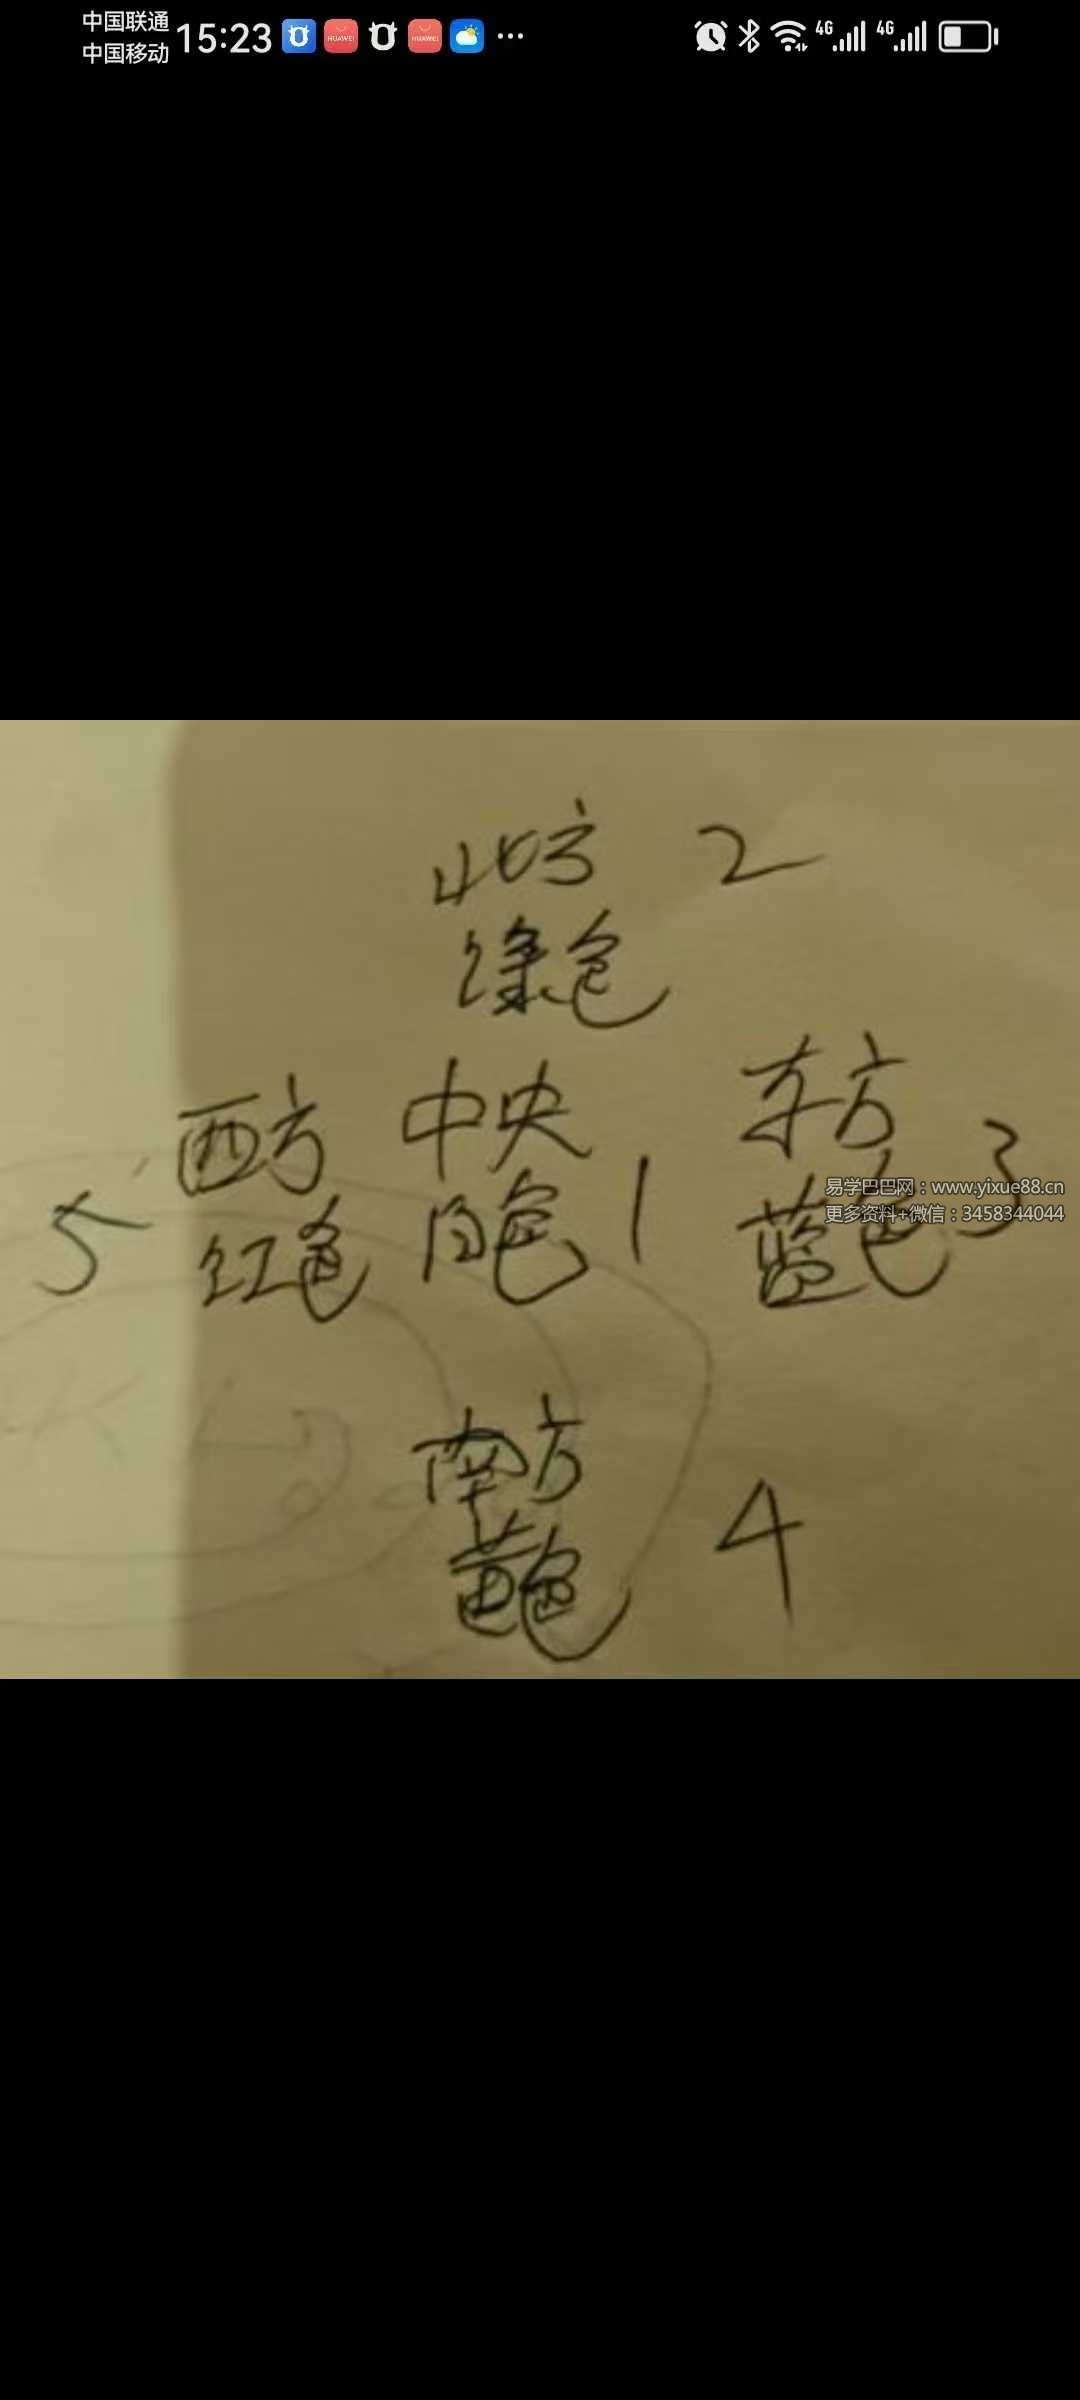 中国联通
中国移动
15:23
HUAWEI
HUAWEI
4G
4G
北方 2
绿色
西方 中央 东方
5 红色 白色 1 蓝色 3
易学巴巴网：www.yixue88.cn
更多资料+微信：3458344044
南方
黄色 4